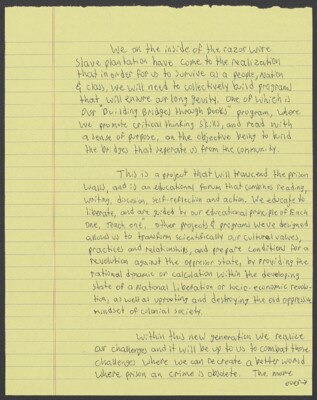 We on the inside of the razor wire
slave plantation have come to the realization
that in order for us to survive as a people, Nation
& class, we will need to collectively build programs
that will ensure our longevity. One of which is
our "Building Bridges Through Books" program, where
we promote critical thinking skills, and read with
a sense of purpose, as the objective being to build
the bridges that seperate us from the community.
This is a project that will transcend the prison
walls, and is an educational forum that combines reading,
writing, discussion, self-reflection and action. We educate to
liberate, and are guided by our educational principle of Each
One, Teach one. Other projects & programs we've designed
allows us to transform scientifically our cultural values,
practices and relationships, and prepare conditions for a
revolution against the oppressor state, by providing the
rational dynamic or calculation within the developing
state of a National liberation or socio-economic revolu-
tion, as well as uprooting and destroying the old oppressive
mindset of colonial society.
Within this new generation we realize
our challenges and it will be up to us to combat those
challenges where we can create a better world
where prison an crime is obsolete. The more
over→